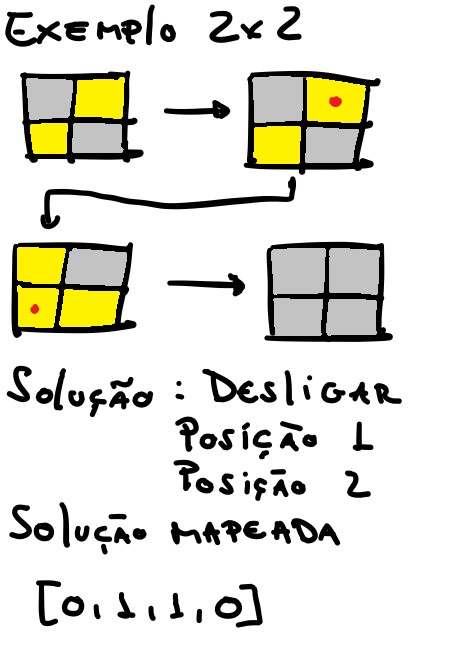 EXEMPlO 2x2
SOlUÇÃO : DESlIGAR
POSIÇÃO 1
POSIÇÃO 2
SOlUÇÃO MAPEADA
[0,1,1,0]